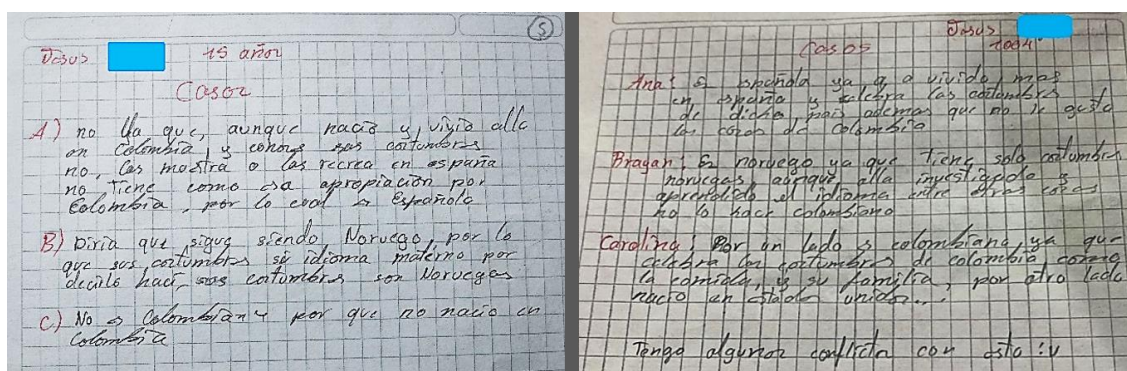 5
Jesus 15 años
Casos
A) no Ya que, aunque nació y vivio alla
en Colombia, y conoce sus costumbres
no, las mostra o las recrea en españa
no tiene como esa apropiación por
Colombia, por lo cual es Española
B) Diria que sigue siendo Noruego, por lo
que sus costumbres su idioma materno por
decirlo haci, sus costumbres son Noruegas
C) No es Colombiana por que no nacio en
Colombia
Jesus
Casos 1004
Ana: Es española ya q a vivido mas
en españa y celebra las costumbres
de dicho pais ademas que no le gusta
las cosas de colombia
Bragan: Es noruego ya que tiene solo costumbres
noruegas, aunque alla investigado y
aprendido el idioma entre otras cosas
no lo hace colombiano
Carolina: Por un lado es colombiana, ya que
celebra las costumbres de colombia, como
la comida, y su familia, por otro lado
nacio en estados unidos...
Tengo algunos conflictos con esto :v